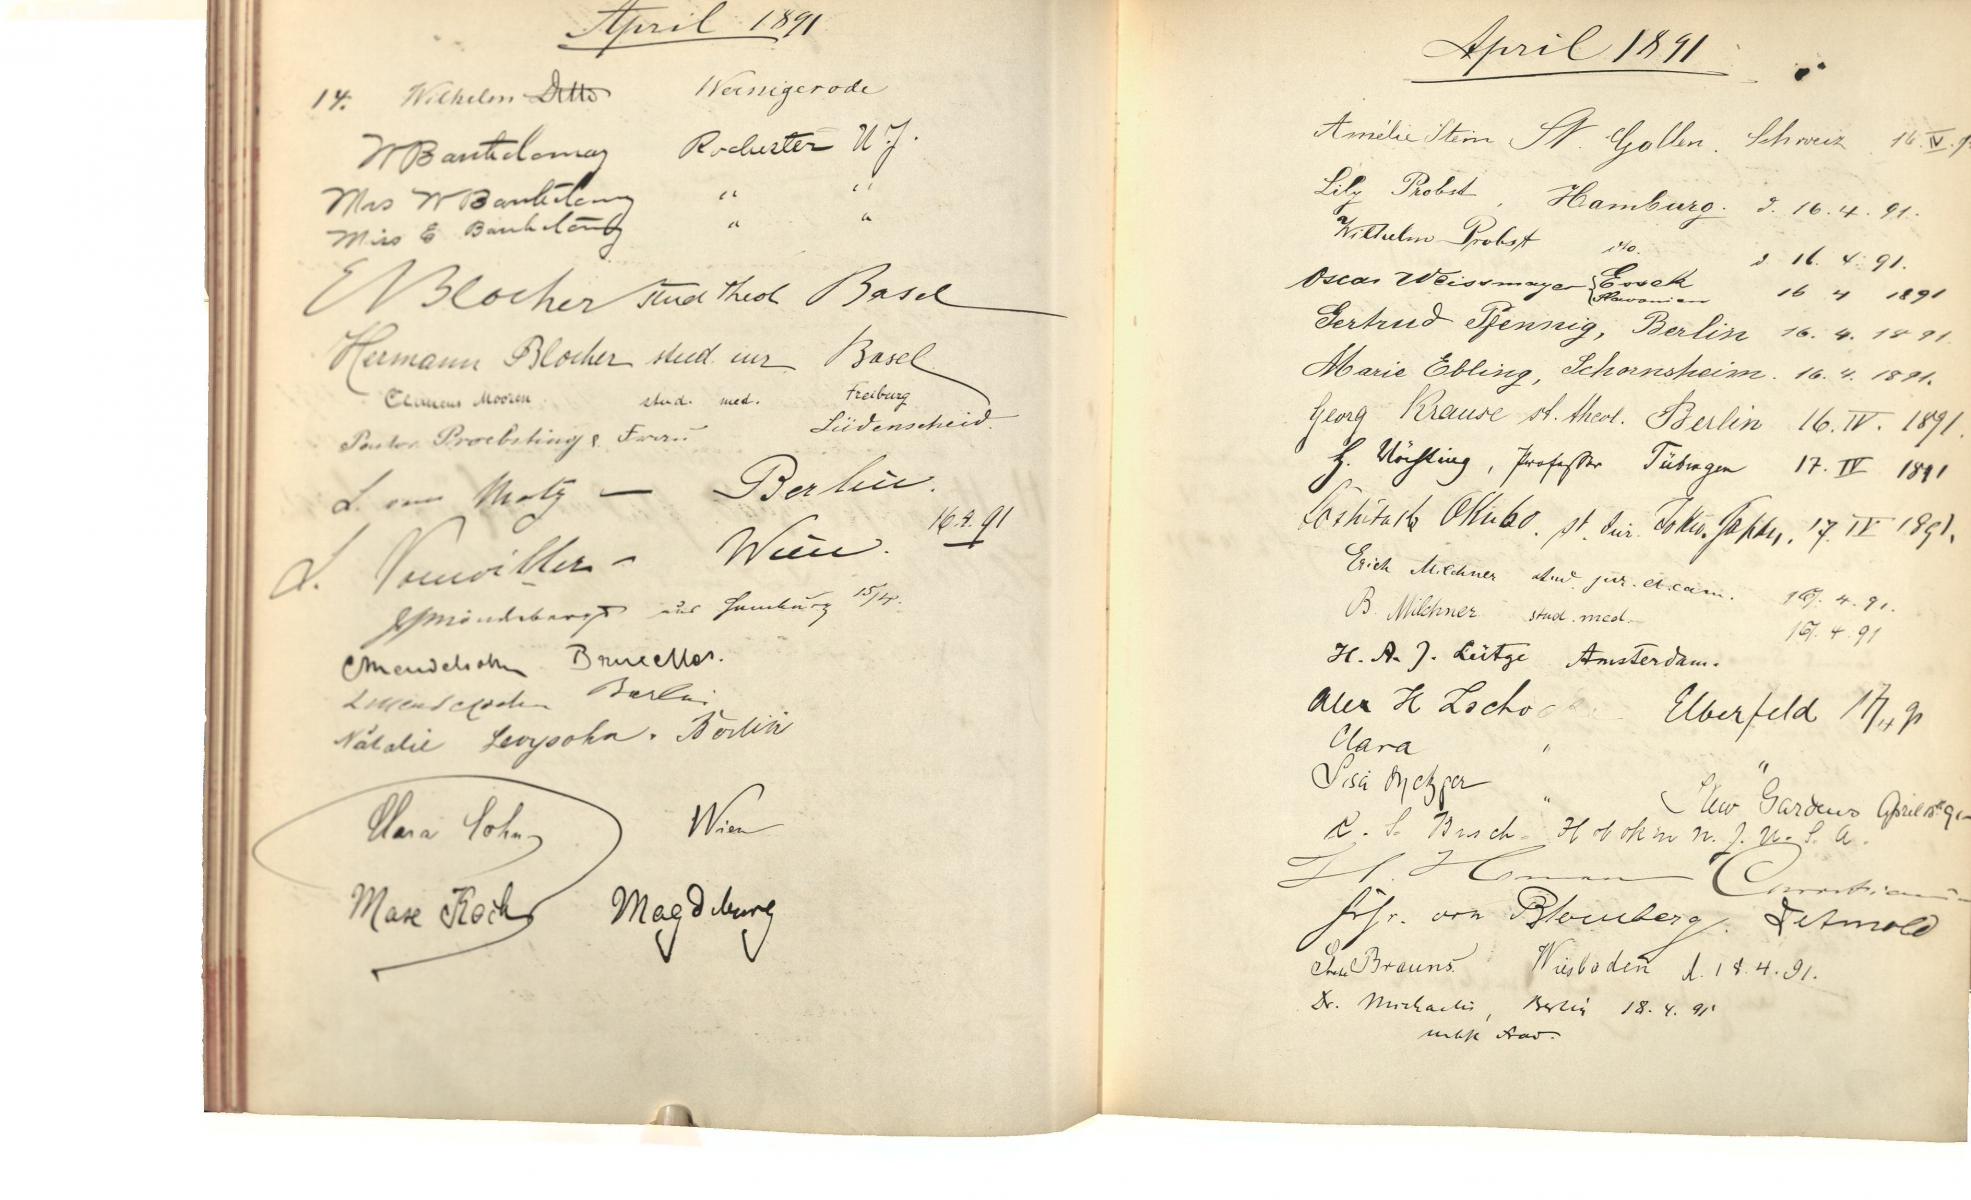 April 1891
14. Wilhelm Ditto Wernigerode
W Bartholomay Rochester N.Y.
Mrs W Bartholomay " "
Miss E Bartholomay " "
E Blocher stud theol Basel
Hermann Blocher stud iur Basel
Clemens Mooren stud. med. Freiburg
Pastor Proebsting & Frau Lüdenscheid.
L. Motz — Berlin.
L. Vonwiller – Wien. 16.4.91
aus Hamburg 15/4.
Mendelsohn Bruxelles.
Mendelsohn Berlin
Natalie Levysohn. Berlin
Clara Cohn Wien
Max Koch Magdeburg
April 1891
Amélie Stein St. Gallen. Schweiz 16.IV.9
Lily Probst, Hamburg. d. 16.4.91.
Wilhelm Probst do. d 16.4.91.
Oscar Weissmayer Essek 16 4 1891
Slavonien
Gertrud Pfennig, Berlin 16.4.1891.
Marie Ebling, Schornsheim. 16.4.1891.
Georg Krause st. theol. Berlin 16.IV.1891.
H. Vöchting, Professor Tübingen 17.IV 1891
Okubo. st. Jur. Tokio. Japan, 17.IV 1891.
Erich Milchner stud. jur. et. cam. 16. 4. 91.
B. Milchner stud. med. 16. 4. 91
H. A. J. Lütge Amsterdam.
Alex H Zscho Elberfeld 17/4 91
Clara " "
Lisa Metzger " Kew Gardens April 18th 91
R. S. Busch – Hoboken N. J. U. S. A.
H. Homan Christiania
Frhr. von Blomberg. Detmold
Brauns. Wiesbaden d. 18.4.91.
Dr. Michaelis, Berlin 18.4.91
nebst Frau.